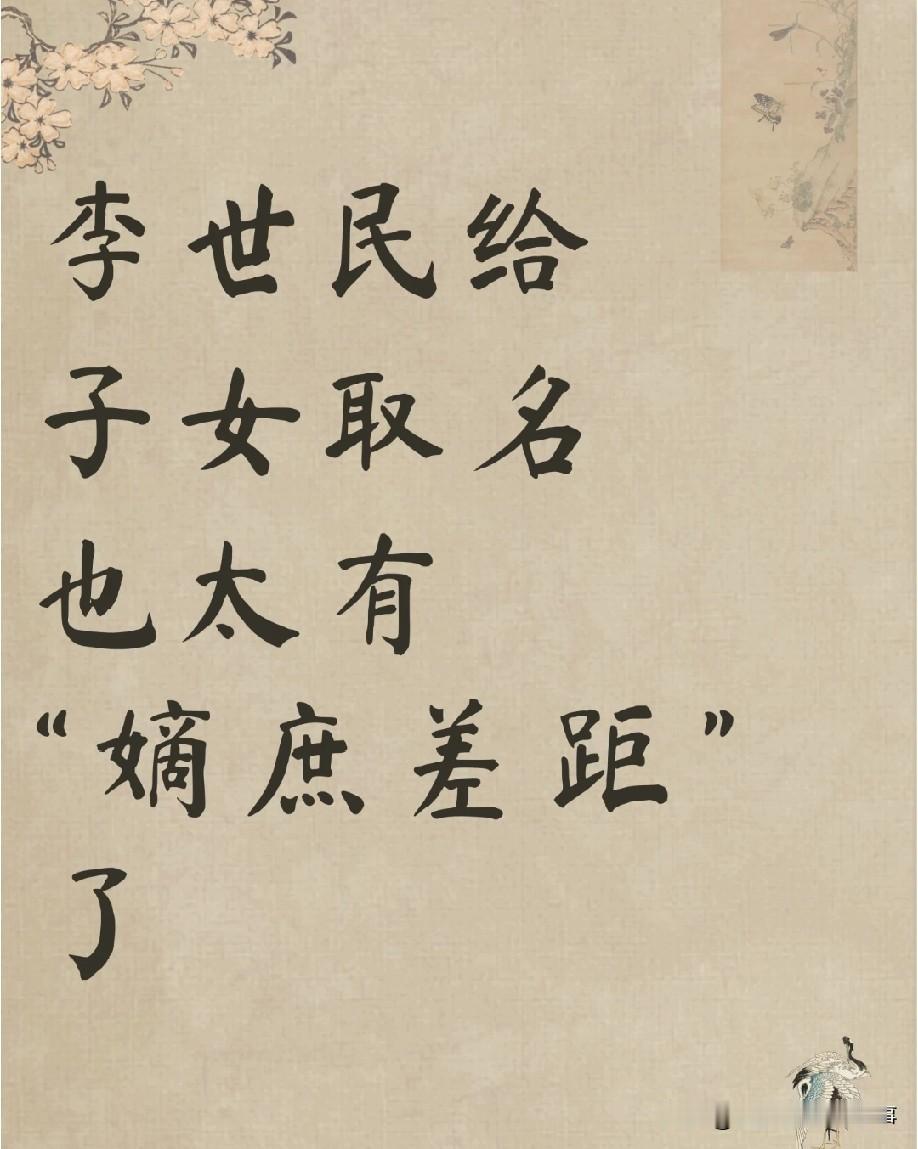 李世民给
子女取名
也太有
“嫡庶差距”
了